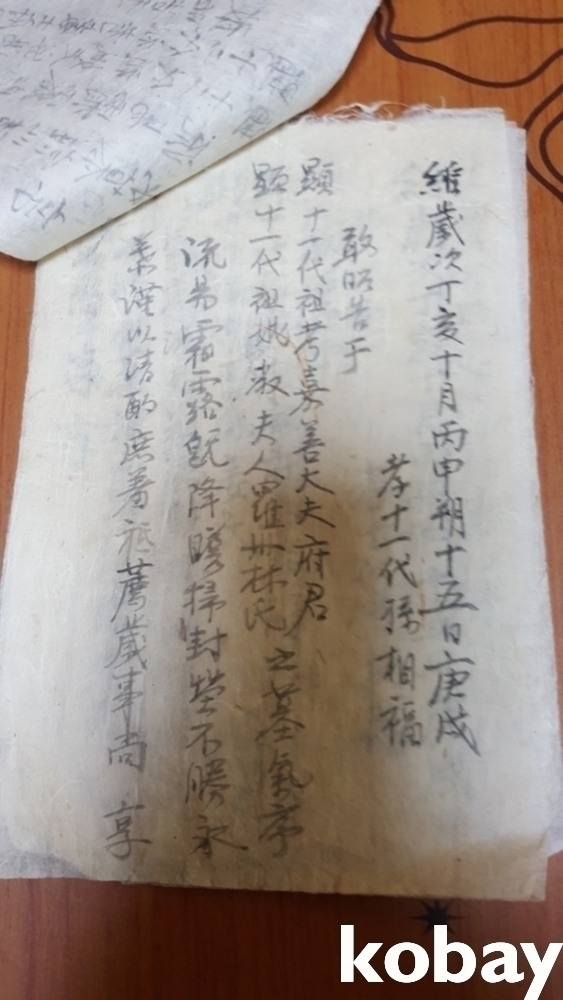 維歲次丁亥十月丙申朔十五日庚戌
孝十一代孫相福
敢昭告于
顯十一代祖考嘉善大夫府君
顯十一代祖妣淑夫人羅州林氏之墓氣序
流易霜露旣降瞻掃封塋不勝永
慕謹以淸酌庶羞祗薦歲事尙 享
kobay